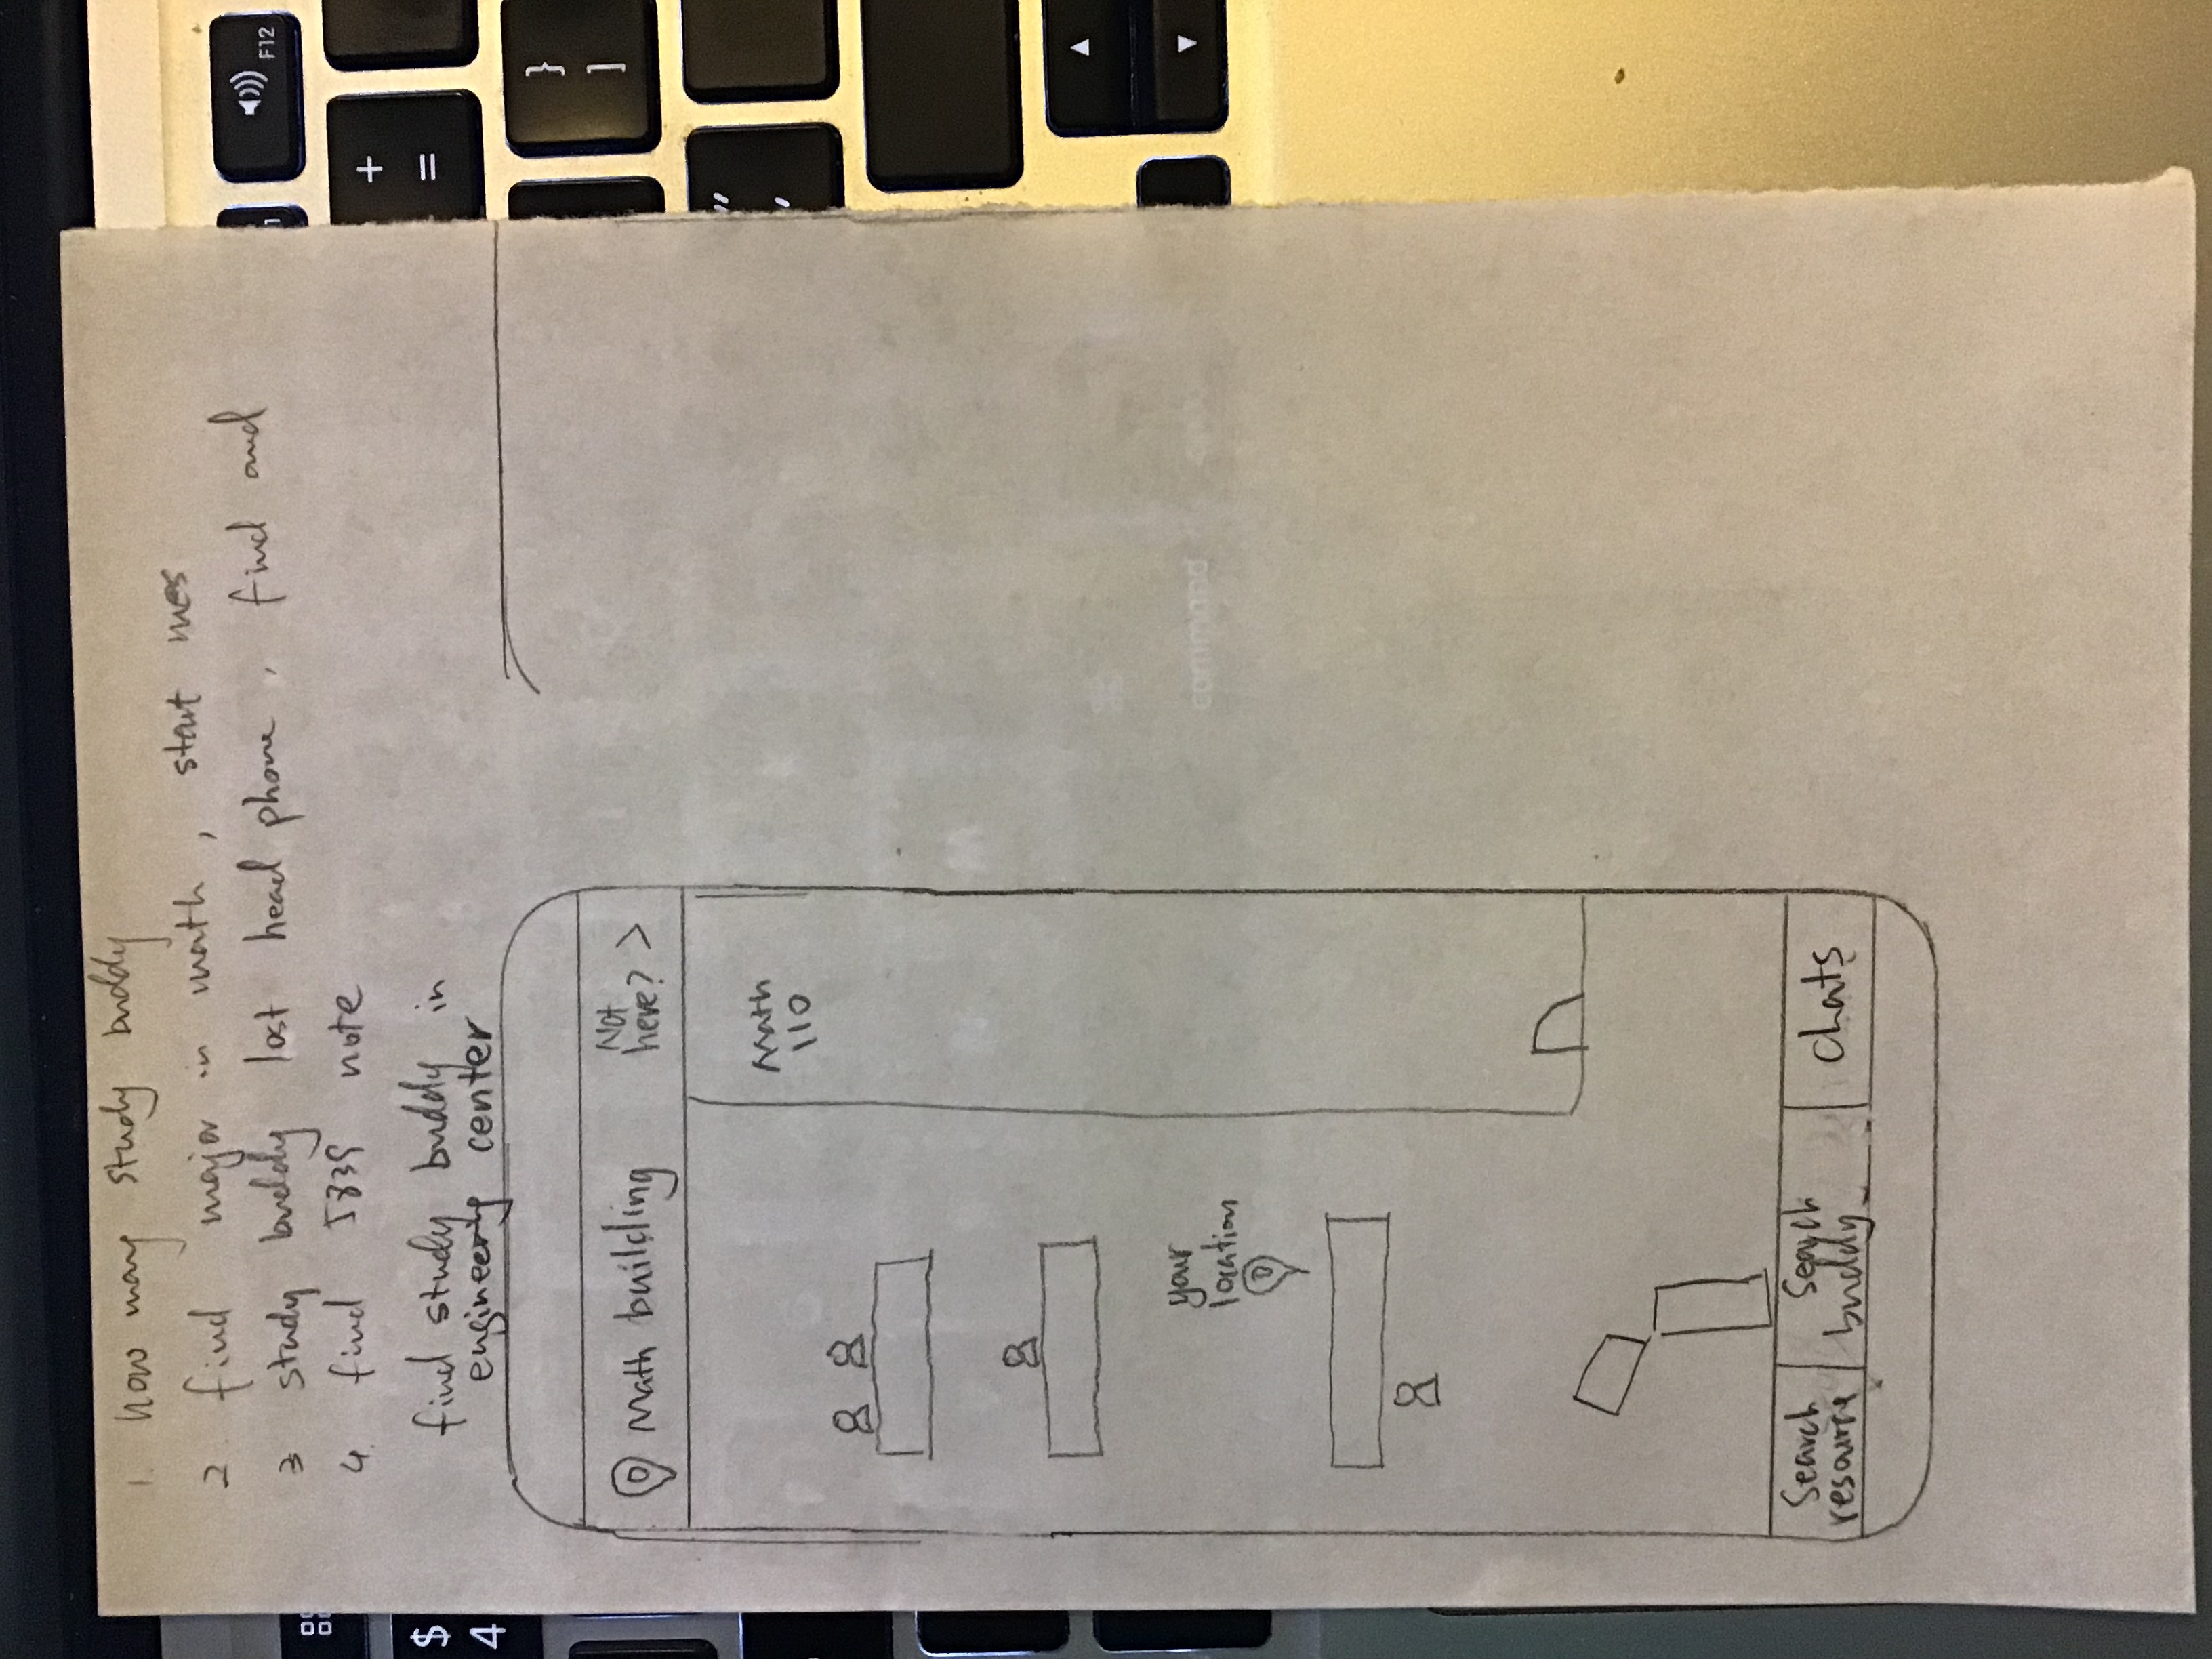 1. how many study buddy
2. find major in math, start mes
3 study buddy lost head phone, find and
4. find 5839 note
find study buddy in
engineering center
Math building
Not
here? >
Math
110
your
location
Search
resource
Search
buddy
chats
F12
+
=
}
]
"
'
$
4
command